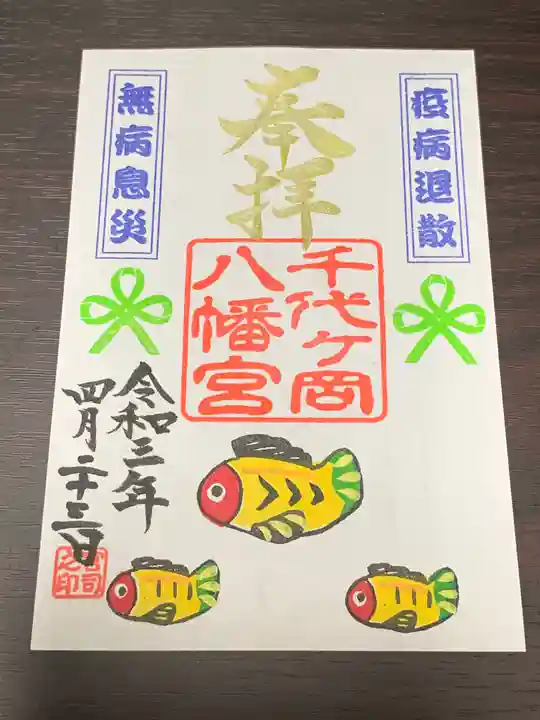 疫病退散
奉拝
無病息災
千代ヶ岡
八幡宮
令和三年
四月二十三日
宮司
之印